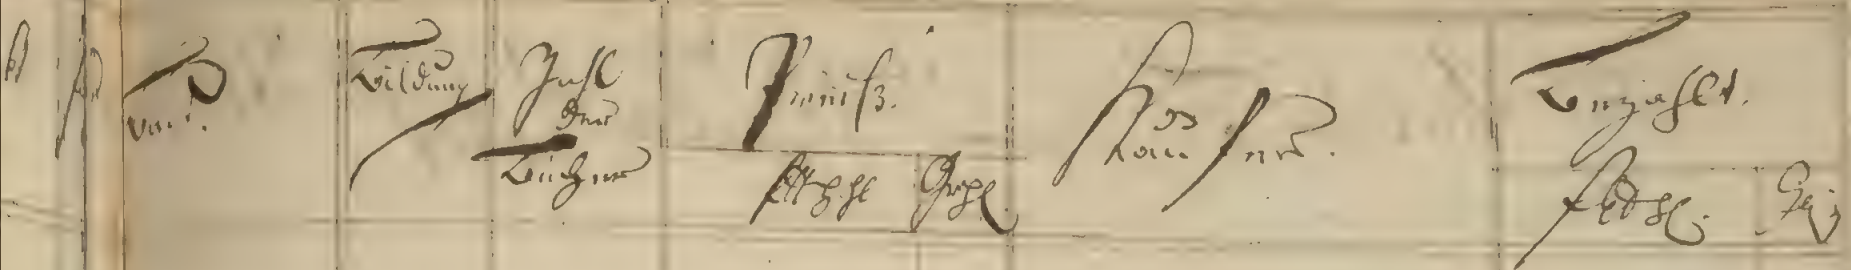 Band.
Bildung
Zahl
der
Bücher
Preiss.
Rthl
Grschl.
Käufer.
Bezahlt.
Rthl.